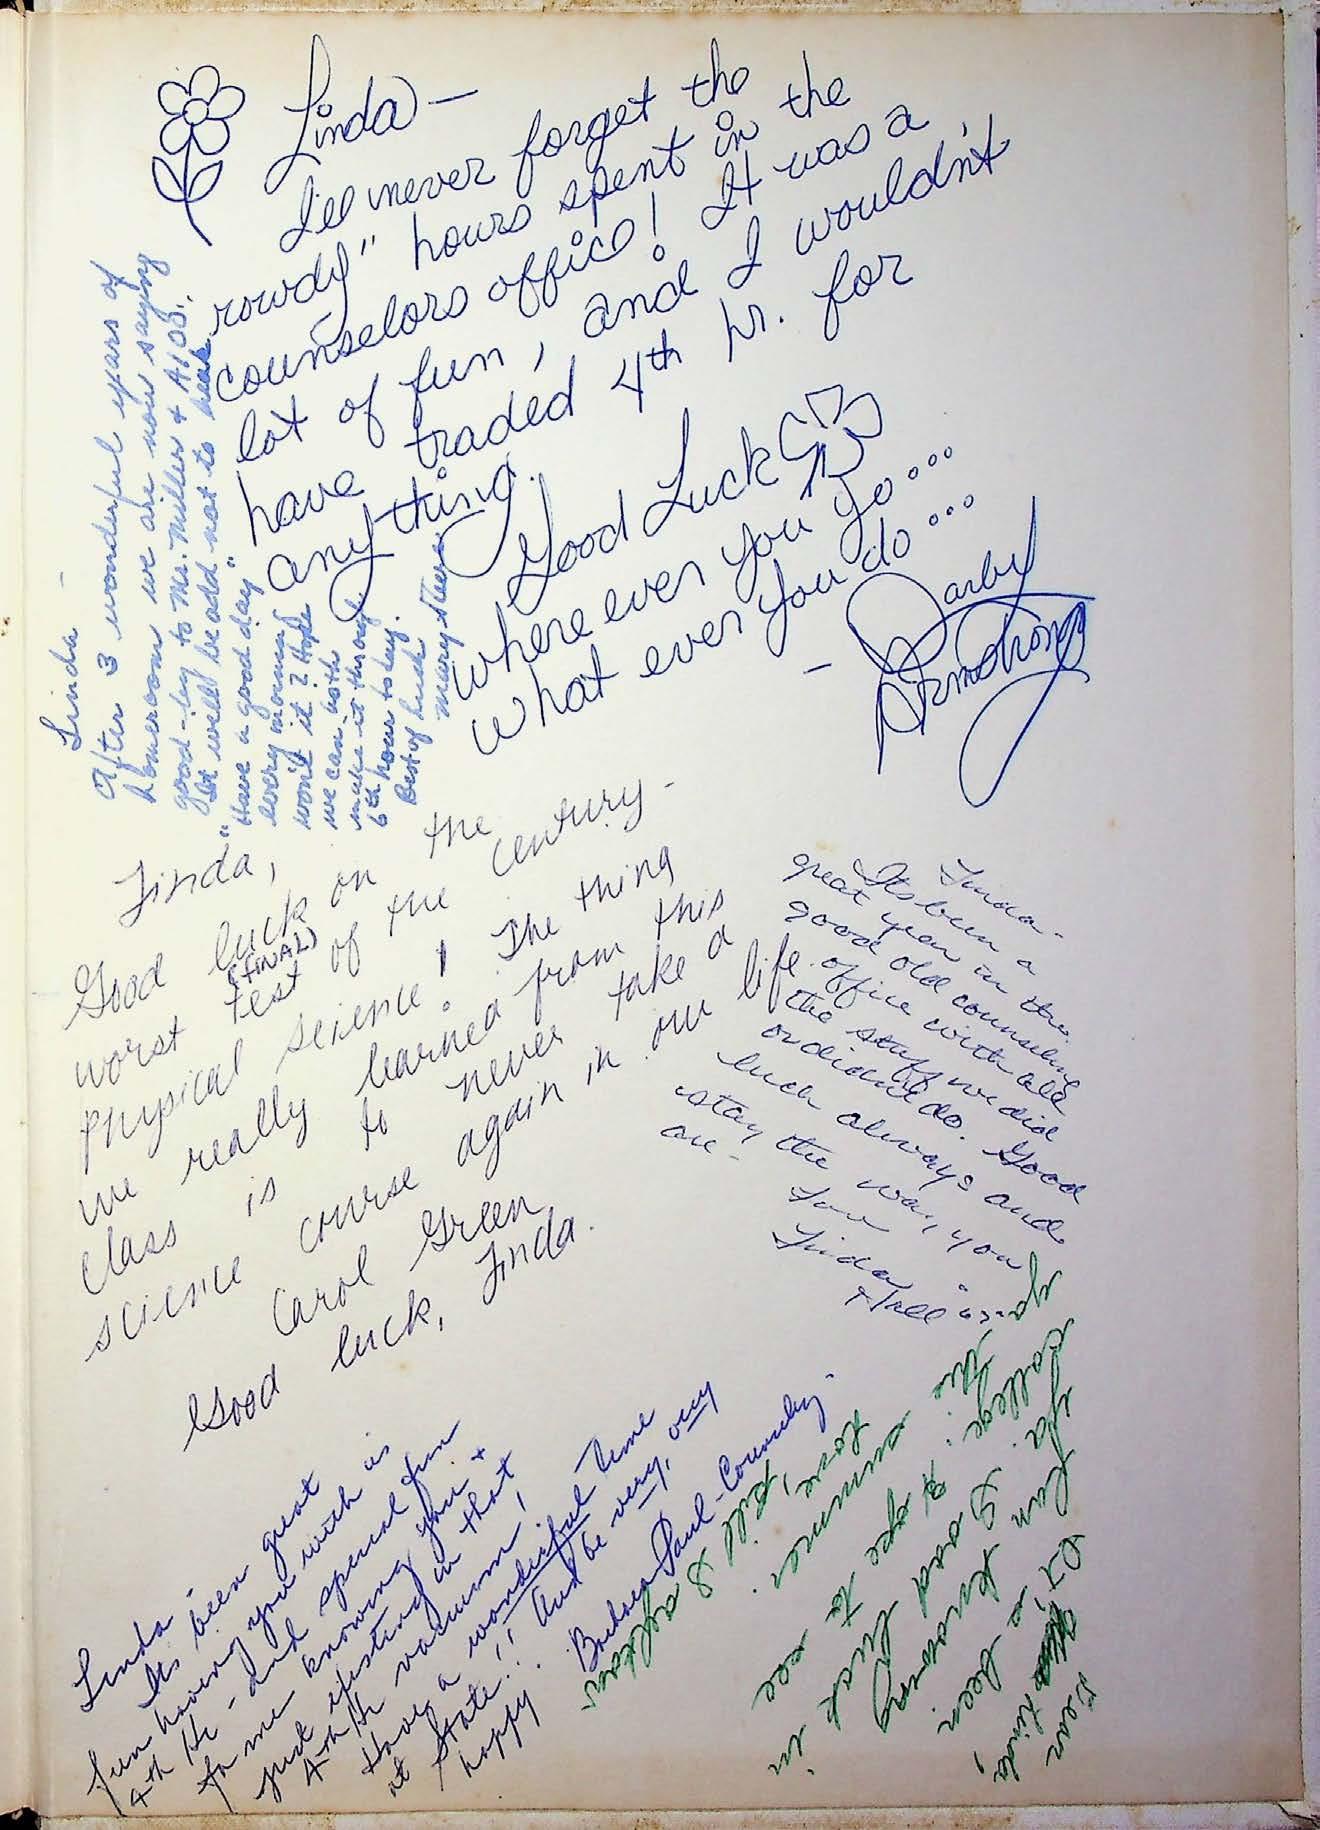 Linda —
I'll never forget the
rowdy" hours spent in the
counselors office! It was a
lot of fun, and I wouldn't
have traded 4th hr. for
anything.
Good Luck
where ever you go...
what ever you do...
— Darby
Armstrong
Linda —
After 3 wonderful years of
homeroom we are now saying
good-by to Mr. Miller + A100.
It will be odd not to hear
"Have a good day"
every morning
won't it? Hope
we can both
make it through
6th hour today.
Best of luck
Mary
Linda,
Good luck on the
worst (FINAL) test of the century -
physical science! The thing
we really learned from this
class is to never take a
science course again in our life.
Carol Green
Good luck, Linda.
Linda -
Its been a
great year in the
good old counseling
office with all
the stuff we did
or didn't do. Good
luck always and
stay the way you
are -
Luv
Linda
Hall
Linda -
Its been great
fun having you with us
4th Hr - and special fun
for me knowing you +
just existing in that
4th Hr vacuum!
Have a wonderful time
at State!! And be very, very
happy.
Barbara Paul - Counseling.
Dear Linda,
It's been
fun knowing
ya. Good luck in
college! Hope to see
ya this
summer.
Love,
Jill